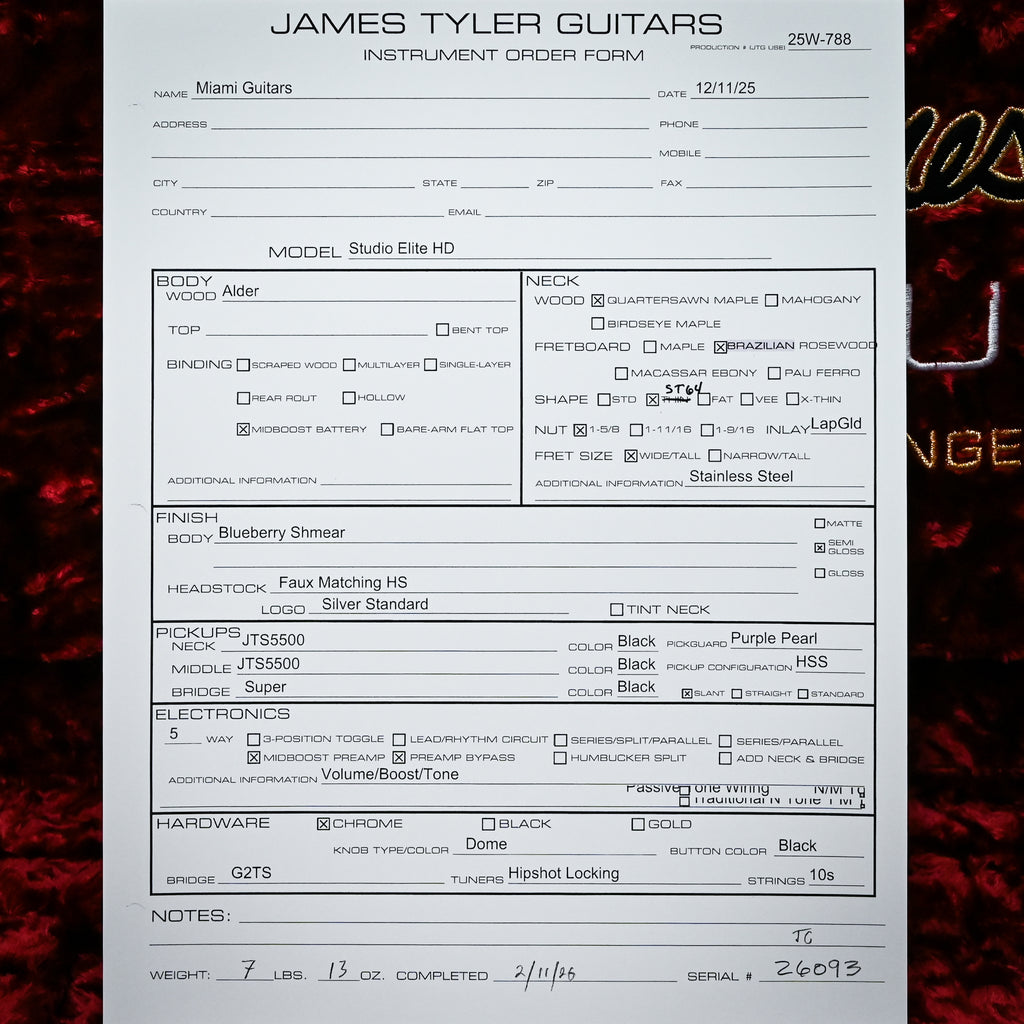 JAMES TYLER GUITARS
INSTRUMENT ORDER FORM
PRODUCTION # (JTG USE) 25W-788
NAME Miami Guitars DATE 12/11/25
ADDRESS PHONE
MOBILE
CITY STATE ZIP FAX
COUNTRY EMAIL
MODEL Studio Elite HD
BODY
WOOD Alder
TOP BENT TOP
BINDING SCRAPED WOOD MULTILAYER SINGLE-LAYER
REAR ROUT HOLLOW
MIDBOOST BATTERY BARE-ARM FLAT TOP
ADDITIONAL INFORMATION
NECK
WOOD QUARTERSAWN MAPLE MAHOGANY
BIRDSEYE MAPLE
FRETBOARD MAPLE BRAZILIAN ROSEWOOD
MACASSAR EBONY PAU FERRO
ST64
SHAPE STD THIN FAT VEE X-THIN
NUT 1-5/8 1-11/16 1-9/16 INLAY LapGld
FRET SIZE WIDE/TALL NARROW/TALL
ADDITIONAL INFORMATION Stainless Steel
FINISH
BODY Blueberry Shmear
MATTE
SEMI GLOSS
GLOSS
HEADSTOCK Faux Matching HS
LOGO Silver Standard TINT NECK
PICKUPS
NECK JTS5500 COLOR Black PICKGUARD Purple Pearl
MIDDLE JTS5500 COLOR Black PICKUP CONFIGURATION HSS
BRIDGE Super COLOR Black SLANT STRAIGHT STANDARD
ELECTRONICS
5 WAY 3-POSITION TOGGLE LEAD/RHYTHM CIRCUIT SERIES/SPLIT/PARALLEL SERIES/PARALLEL
MIDBOOST PREAMP PREAMP BYPASS HUMBUCKER SPLIT ADD NECK & BRIDGE
ADDITIONAL INFORMATION Volume/Boost/Tone
Passive Tone Wiring N/M
Traditional N Tone
HARDWARE CHROME BLACK GOLD
KNOB TYPE/COLOR Dome BUTTON COLOR Black
BRIDGE G2TS TUNERS Hipshot Locking STRINGS 10s
NOTES:
WEIGHT: 7 LBS. 13 OZ. COMPLETED 2/11/26 SERIAL # 26093